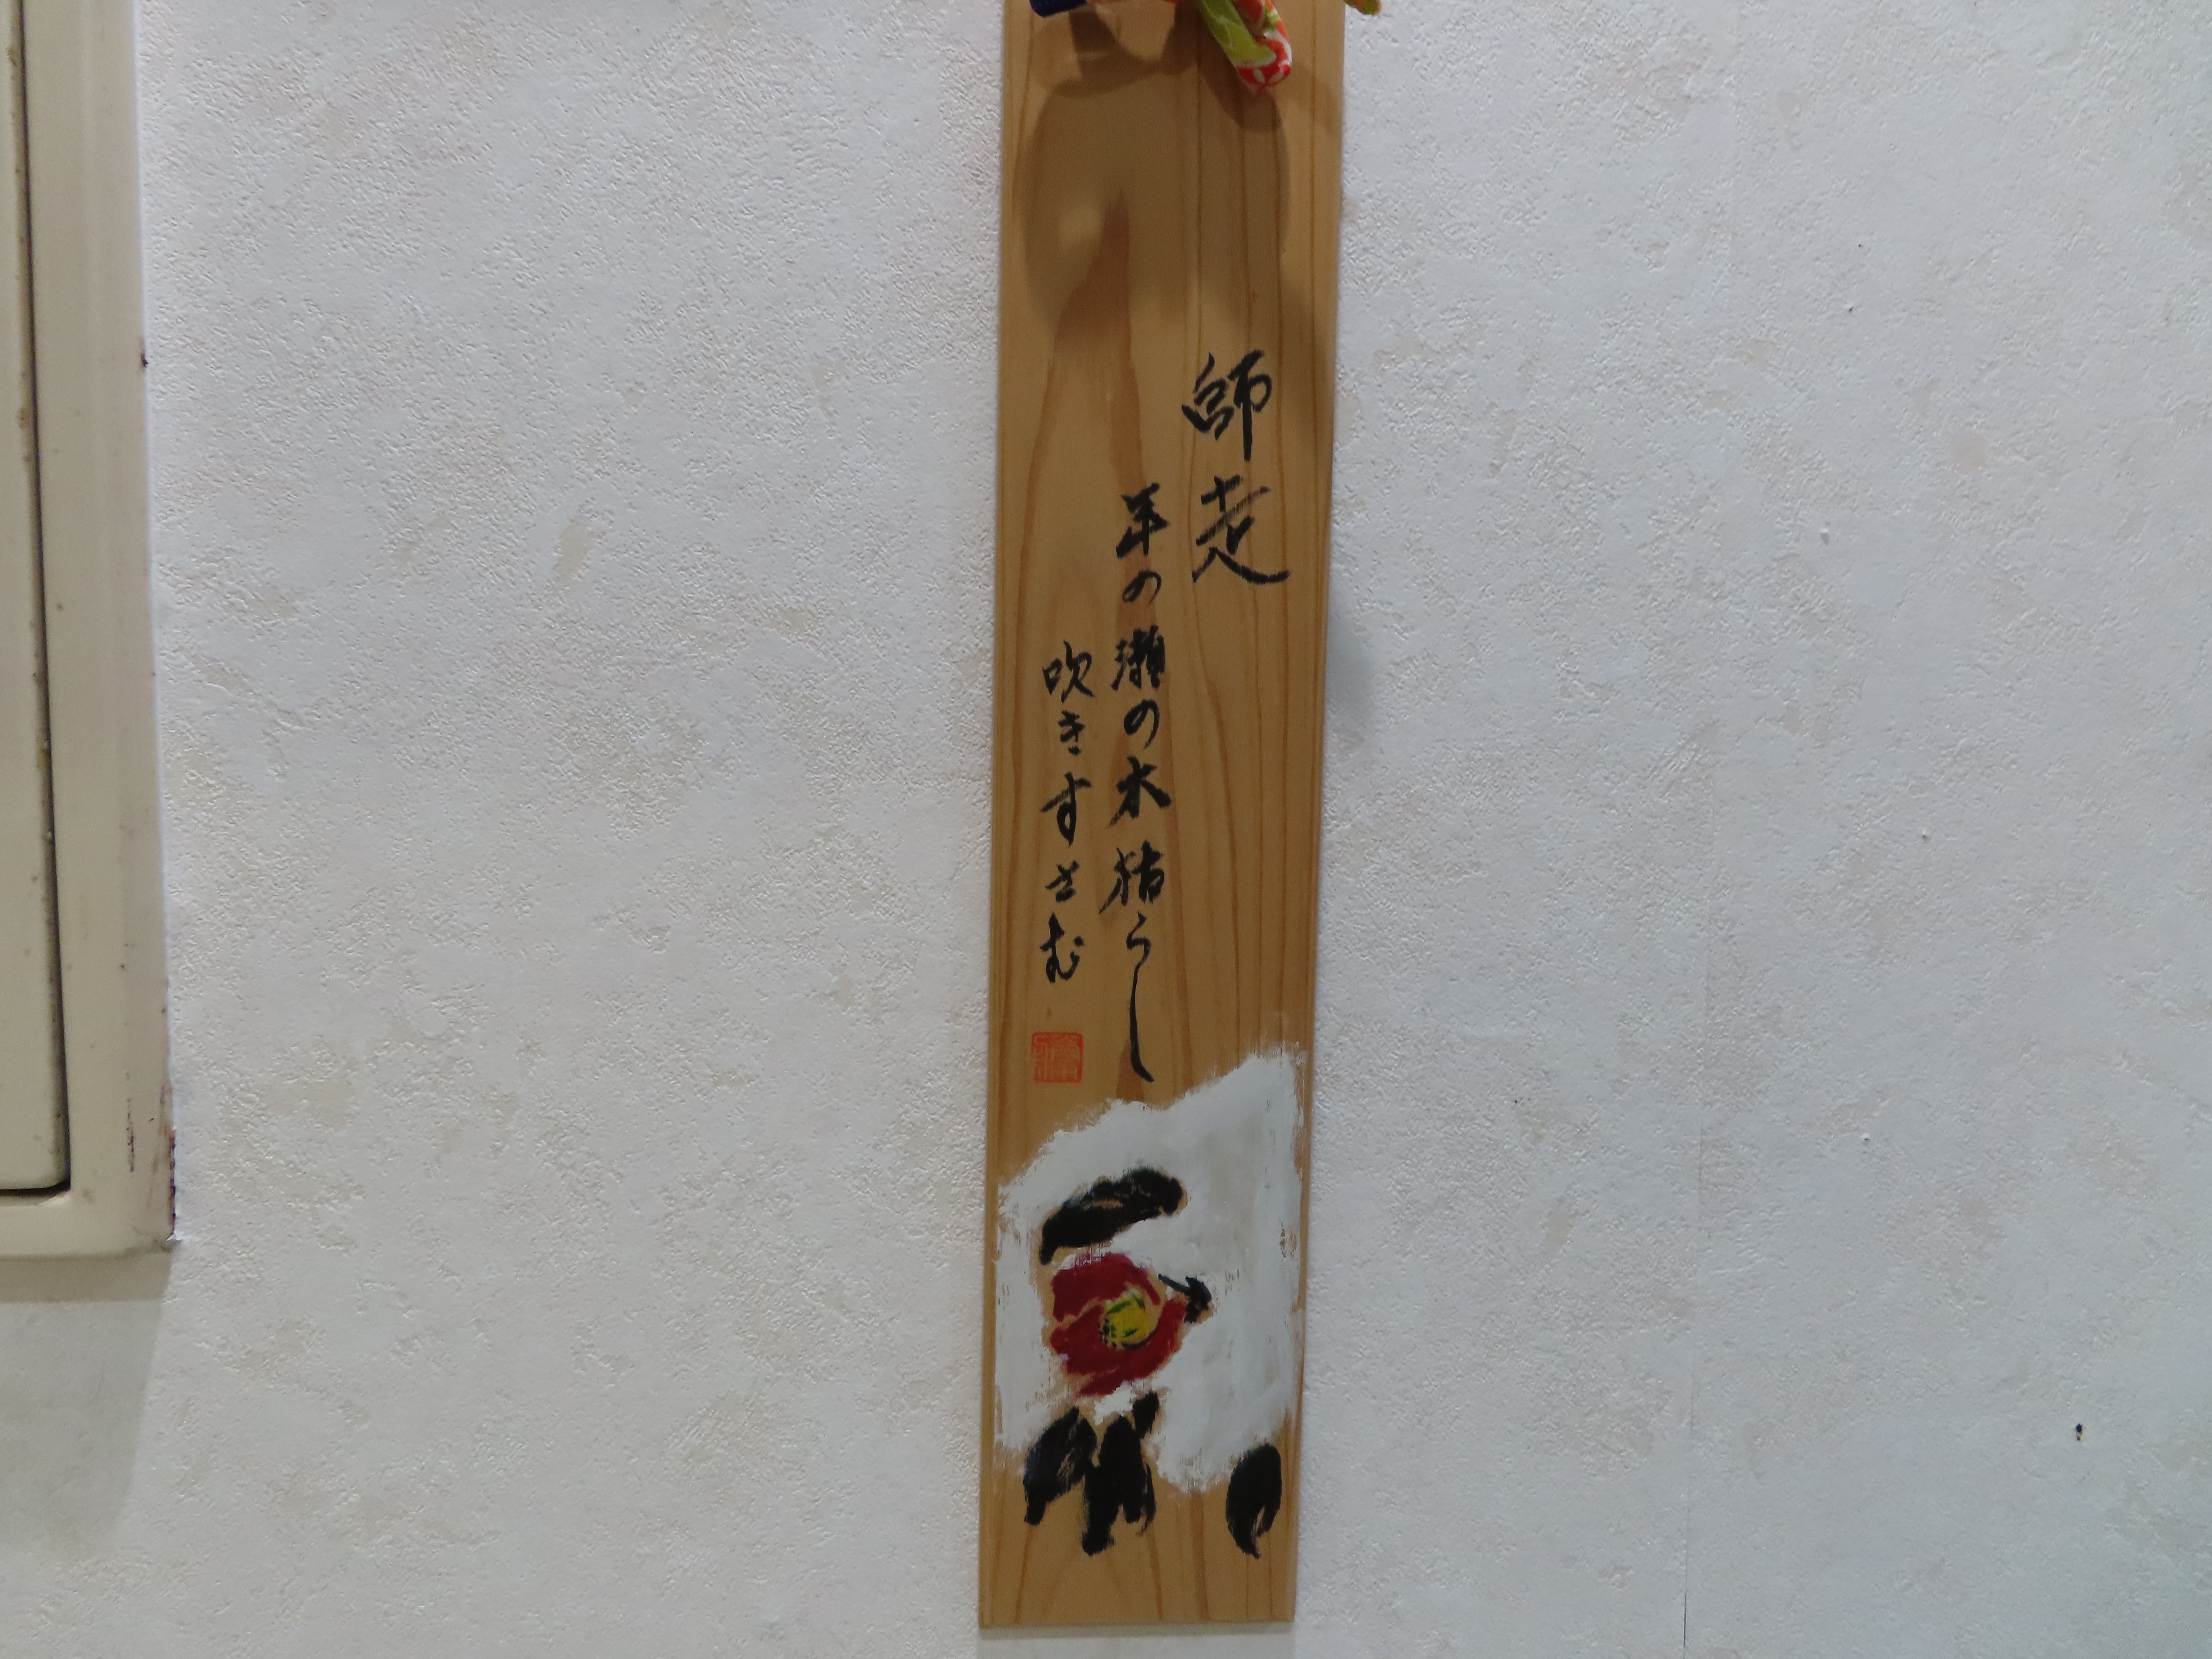 師走
年の瀬の木枯らし
吹きすさむ